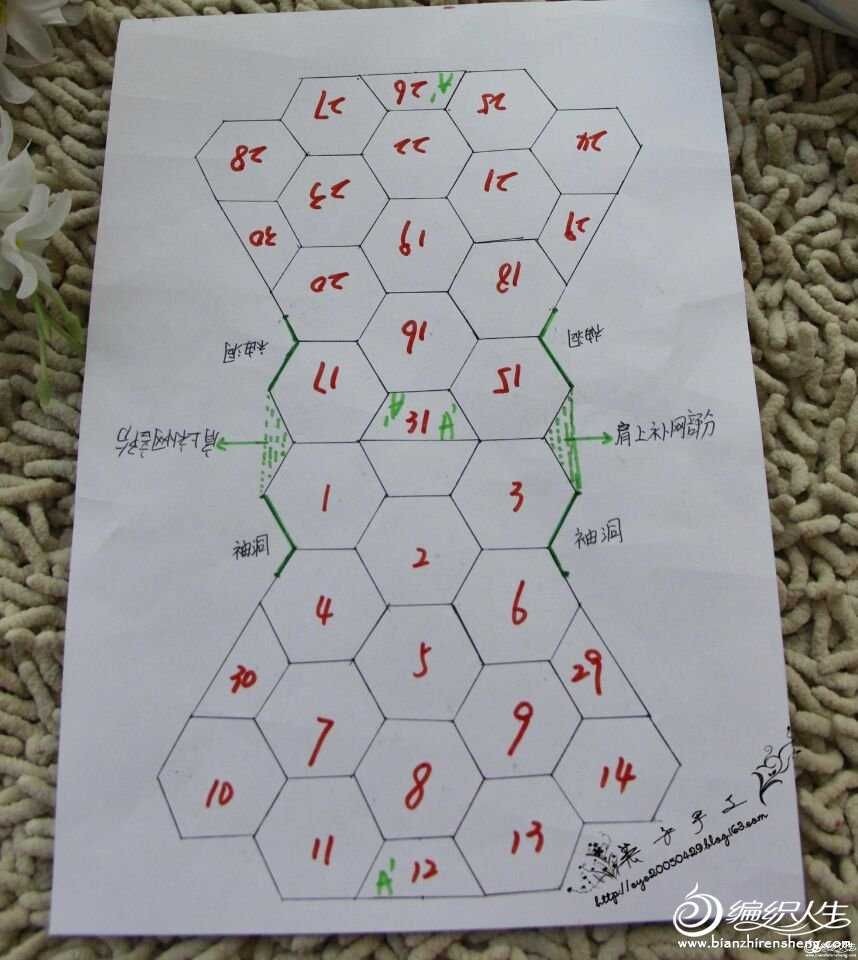 27
26
A'
25
28
22
24
23
21
30
19
29
20
18
袖洞
16
袖洞
17
15
A'
31
A'
肩上补网部分
肩上补网部分
1
3
袖洞
2
袖洞
4
6
30
5
29
7
9
10
8
14
11
A'
12
13
手工
http://eyc20050429.blog.163.com
编织人生
www.bianzhirensheng.com